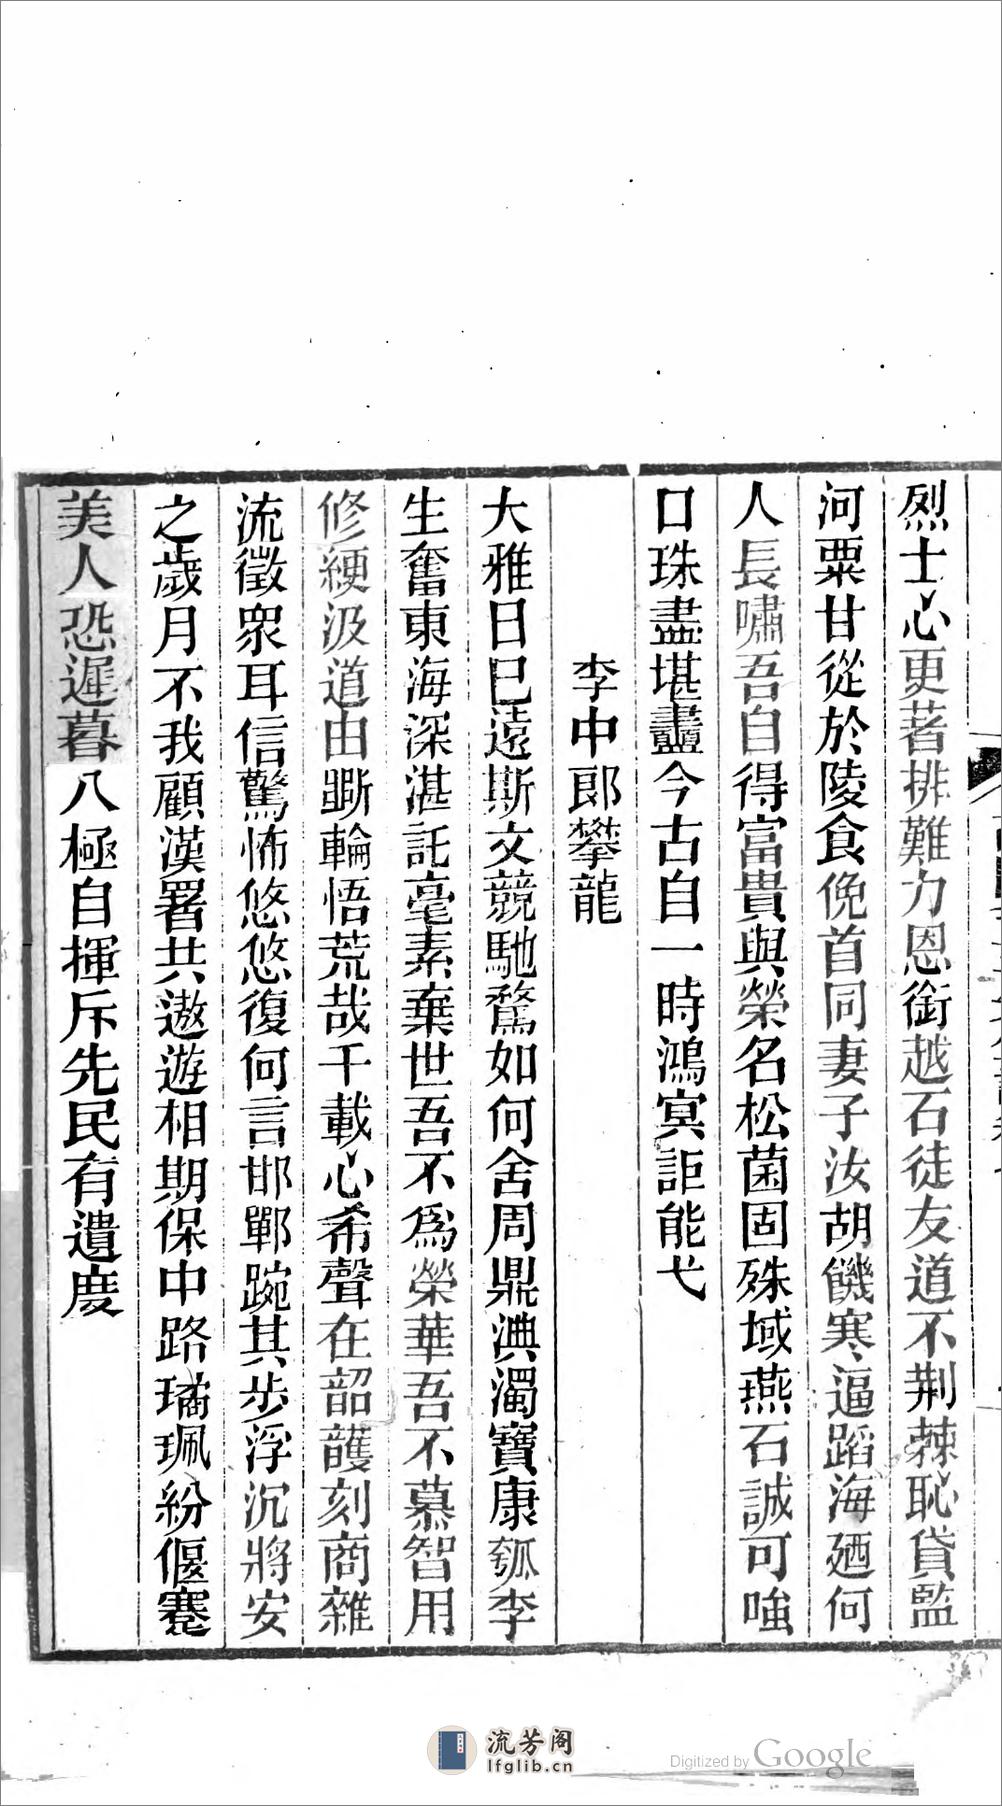 烈士心更著排難力恩銜越石徒友道不荆棘恥貸監
河粟甘從於陵食俛首同妻子汝胡饑寒逼蹈海廼何
人長嘯吾自得富貴與榮名松菌固殊域燕石誠可嗤
口珠盡堪蠹今古自一時鴻冥詎能弋
李中郎攀龍
大雅日已遠斯文競馳騖如何舍周鼎淟濁寶康瓠李
生奮東海深湛託毫素棄世吾不爲榮華吾不慕智用
修綆汲道由斲輪悟荒哉千載心希聲在韶頀刻商雜
流徵衆耳信驚怖悠悠復何言邯鄲踠其步浮沉將安
之歲月不我顧漢署共遨遊相期保中路璚珮紛偃蹇
美人恐遲暮八極自揮斥先民有遺度
流芳阁
lfglib.cn
Digitized by Google